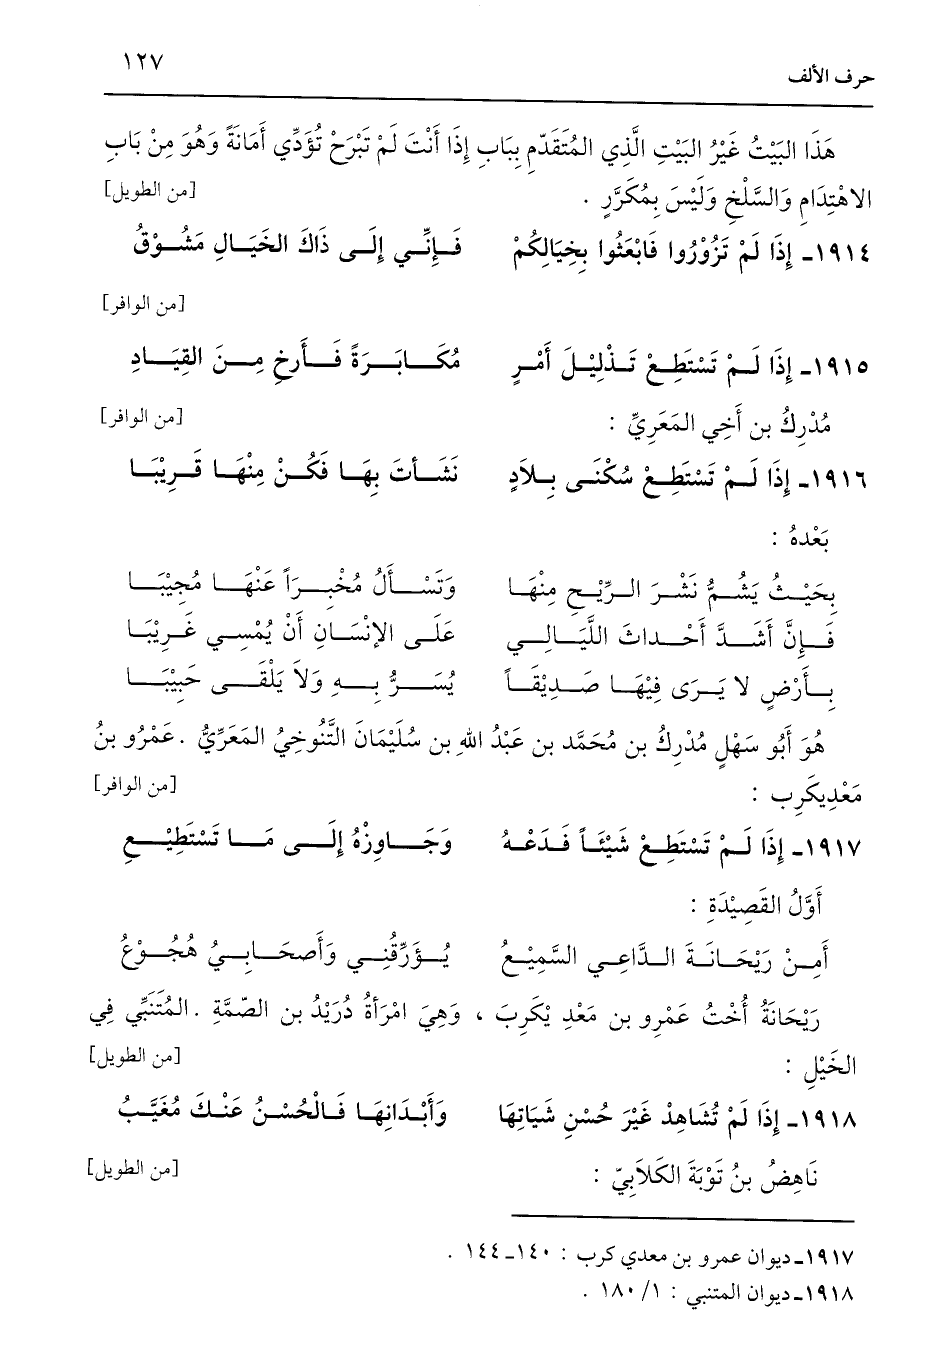 حرف الألف ١٢٧
هَذَا البَيْتُ غَيْرُ البَيْتِ الَّذِي المُتَقَدّمِ بِبَابِ إِذَا أَنْتَ لَمْ تَبْرَحْ تُؤَدِّي أَمَانَةً وَهُوَ مِنْ بَابِ
الاهْتِدَامِ وَالسَّلْخِ وَلَيْسَ بِمُكَرَّرٍ . [من الطويل]
١٩١٤ـ إِذَا لَمْ تَزُوْرُوا فَابْعَثُوا بِخِيَالِكُمْ فَإِنِّي إِلَى ذَاكَ الخَيَالِ مَشُوْقُ
[من الوافر]
١٩١٥ـ إِذَا لَمْ تَسْتَطِعْ تَذْلِيْلَ أَمْرٍ مُكَابَرَةً فَأَرِخِ مِنَ القِيَادِ
مُدْرِكُ بن أَخِي المَعَرِيِّ : [من الوافر]
١٩١٦ـ إِذَا لَمْ تَسْتَطِعْ سُكْنَى بِلاَدٍ نَشَأتَ بِهَا فَكُنْ مِنْهَا قَرِيْبَا
بَعْدهُ :
بِحَيْثُ يَشُمُّ نَشْرَ الرِّيْحِ مِنْهَا وَتَسْأَلُ مُخْبِراً عَنْهَا مُجِيْبَا
فَإِنَّ أَشَدَّ أَحْداثَ اللَّيَالِي عَلَى الإنْسَانِ أَنْ يُمْسِي غَرِيْبَا
بِأَرْضٍ لا يَرَى فِيْهَا صَدِيْقَاً يُسَرُّ بِهِ وَلاَ يَلْقَى حَبِيْبَا
هُوَ أَبُو سَهْلٍ مُدْرِكُ بن مُحَمَّد بن عَبْدُ اللهِ بن سُلَيْمَانَ التَّنُوخِيُ المَعَرِّيُّ . عَمْرُو بنُ
مَعْدِيكَرِب : [من الوافر]
١٩١٧ـ إِذَا لَمْ تَسْتَطِعْ شَيْئَاً فَدَعْهُ وَجَاوِزْهُ إِلَى مَا تَسْتَطِيْعِ
أَوَّلُ القَصِيْدَةِ :
أَمِنْ رَيْحَانَةَ الدَّاعِي السَّمِيْعُ يُؤَرِّقُنِي وَأَصحَابِيُ هُجُوْعُ
رَيْحَانَةُ أُخْتُ عَمْرِو بن مَعْدِ يْكَرِبَ ، وَهِيَ امْرَأةُ دُرَيْدُ بن الصِّمَّةِ . المُتَنَبِّي فِي
الخَيْلِ : [من الطويل]
١٩١٨ـ إِذَا لَمْ تُشَاهِدْ غَيْرَ حُسْنِ شَيَاتِهَا وَأَبْدَانِهَا فَالْحُسْنُ عَنْكَ مُغَيَّبُ
نَاهِضُ بنُ تَوْبَةَ الكَلاَبِيّ : [من الطويل]
١٩١٧ـ ديوان عمرو بن معدي كرب : ١٤٠ـ١٤٤ .
١٩١٨ـ ديوان المتنبي : ١/ ١٨٠ .